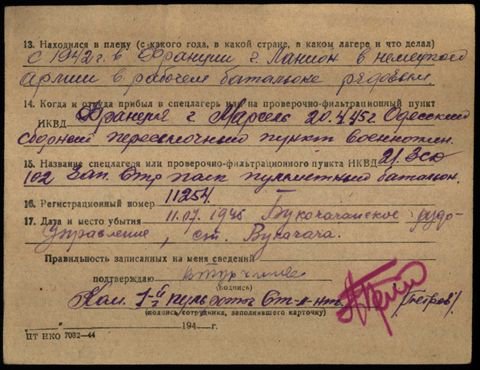 13. Находился в плену (с какого года, в какой стране, в каком лагере и что делал)
С 1942 г. в Франции г. Лапион в немецкой
армии в рабочем батальоне рядовым.
14. Когда и откуда прибыл в спецлагерь или на проверочно-фильтрационный пункт
НКВД Франция г Марсель 20.4.45г Одесский
сборный пересылочный пункт военноплен.
15. Название спецлагеря или проверочно-фильтрационного пункта НКВД 21. Зсо
102 Зап. Стр полк пулеметный батальон.
16. Регистрационный номер 11254.
17. Дата и место убытия 11.07.1945 Букачачинское рудо-
управление, ст. Букачача.
Правильность записанных на меня сведений
подтверждаю
(подпись)
Ком. 1-й пуль роты Ст-л-нт (Петров).
(подпись сотрудника, заполнявшего карточку)
194 г.
ПТ НКО 7032—44